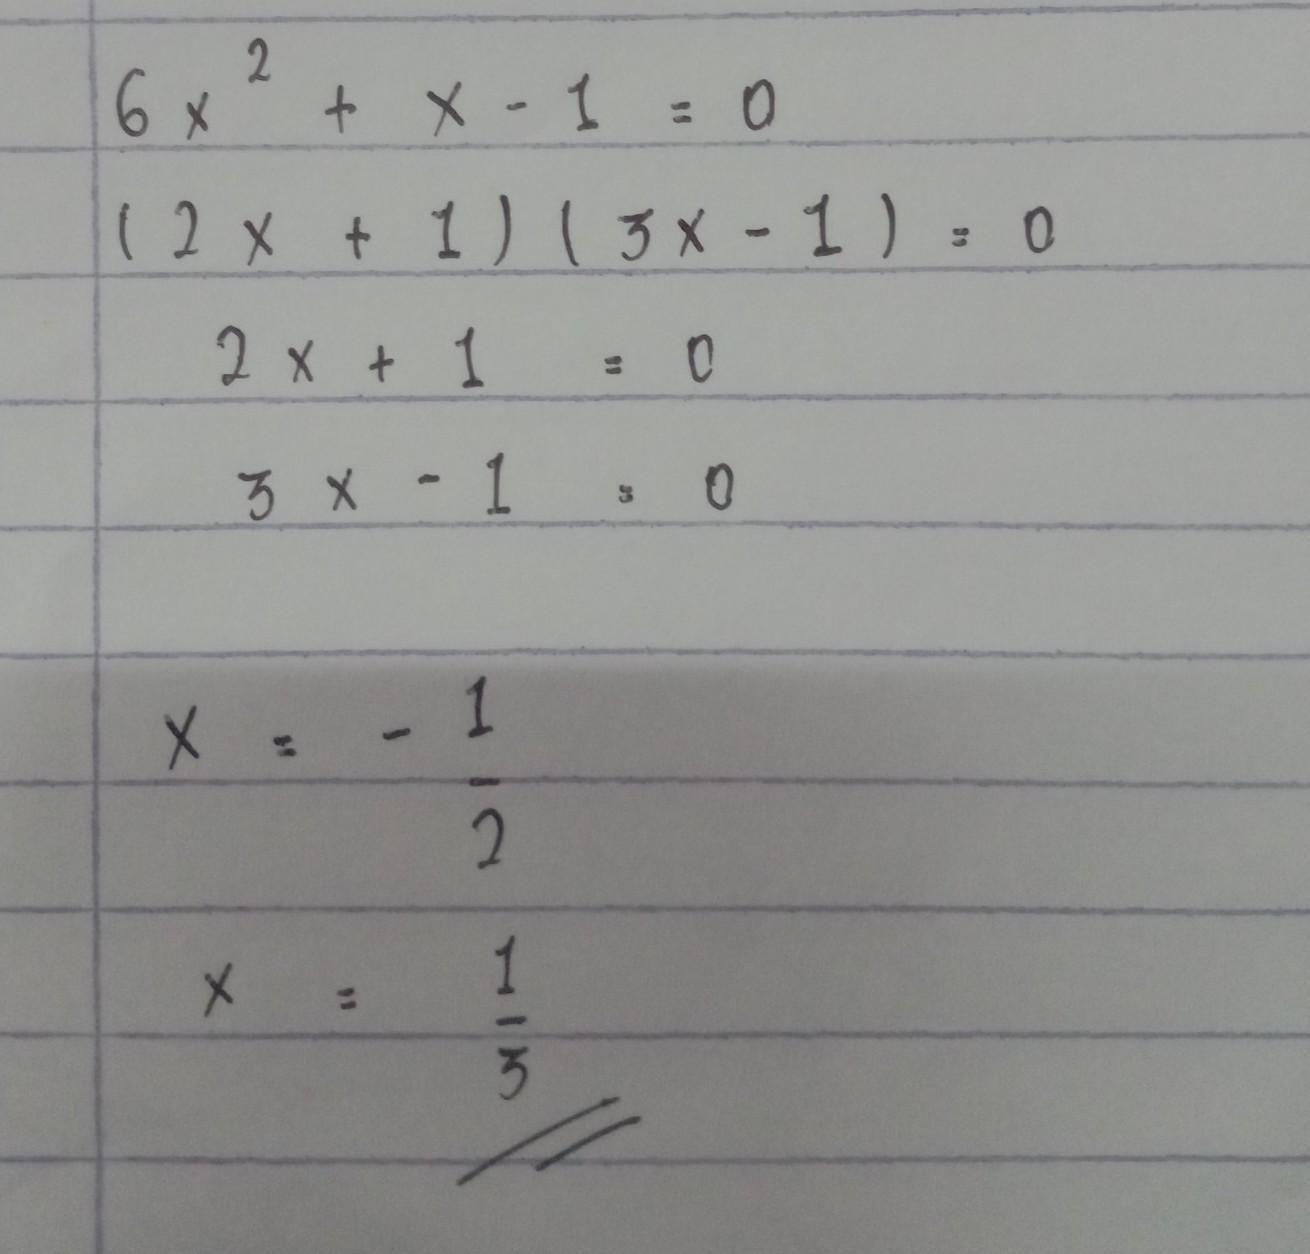 6x² + x - 1 = 0
(2x + 1)(3x - 1) = 0
2x + 1 = 0
3x - 1 = 0
x = - 1/2
x = 1/3